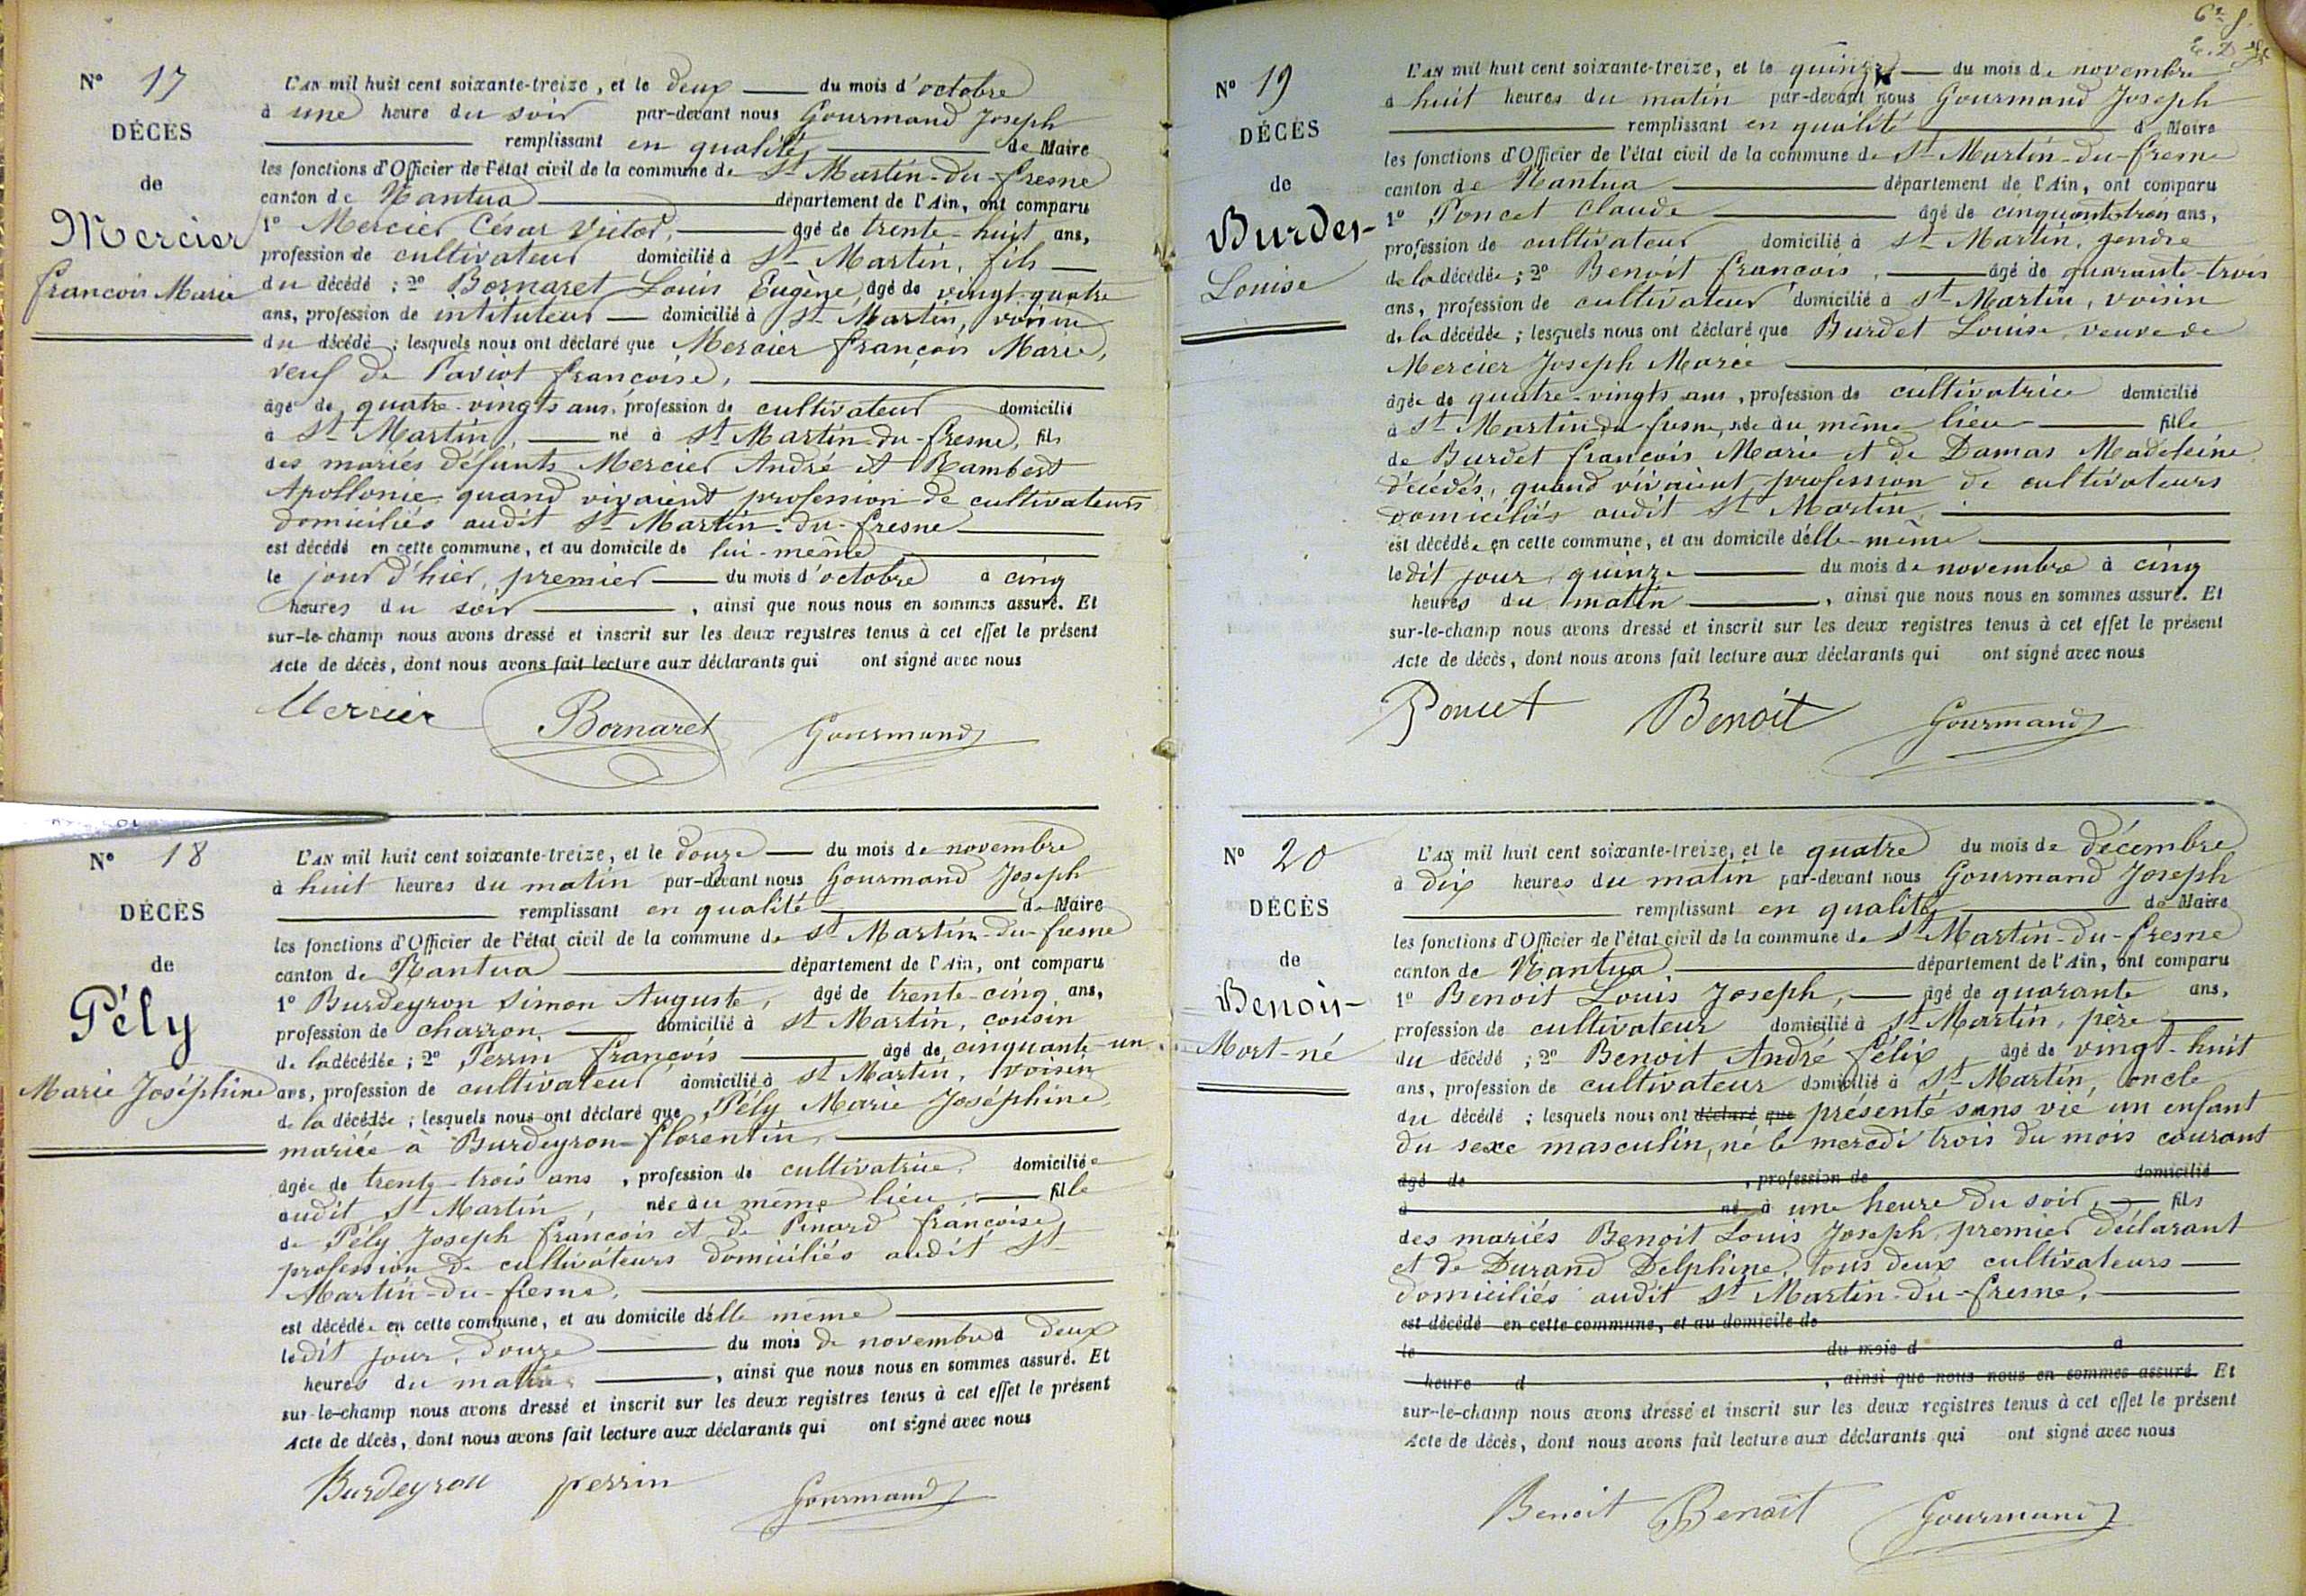 N° 17
DÉCÈS
de
Mercier
François Marie
L'AN mil huit cent soixante-treize, et le deux du mois d'octobre
à une heure du soir par-devant nous Gourmand Joseph
remplissant en qualité de Maire
les fonctions d'Officier de l'état civil de la commune de St Martin-du-fresne
canton de Nantua département de l'Ain, ont comparu
1° Mercier César Victor, âgé de trente-huit ans,
profession de cultivateur domicilié à St Martin, fils
du décédé ; 2° Bornaret Louis Eugène, âgé de vingt-quatre
ans, profession de intituteur domicilié à St Martin, voisin
du décédé ; lesquels nous ont déclaré que Mercier françois Marie,
veuf de Paviot françoise,
âgé de quatre-vingts ans, profession de cultivateur domicilié
à St Martin, né à St Martin-du-fresne, fils
des mariés défunts Mercier André et Rambert
Apollonie quand vivaient profession de cultivateurs
domiciliés audit St Martin-du-fresne
est décédé en cette commune, et au domicile de lui-même
le jour d'hier, premier du mois d'octobre à cinq
heures du soir, ainsi que nous nous en sommes assuré. Et
sur-le-champ nous avons dressé et inscrit sur les deux registres tenus à cet effet le présent
Acte de décès, dont nous avons fait lecture aux déclarants qui ont signé avec nous
Mercier Bornaret Gourmand
N° 18
DÉCÈS
de
Pély
Marie Joséphine
L'AN mil huit cent soixante-treize, et le douze du mois de novembre
à huit heures du matin par-devant nous Gourmand Joseph
remplissant en qualité de Maire
les fonctions d'Officier de l'état civil de la commune de St Martin-du-fresne
canton de Nantua département de l'Ain, ont comparu
1° Burdeyron Simon Auguste, âgé de trente-cinq ans,
profession de charron domicilié à St Martin, cousin
de la décédée ; 2° Perrin françois âgé de cinquante-un
ans, profession de cultivateur domicilié à St Martin, voisin
de la décédée ; lesquels nous ont déclaré que Pély Marie Joséphine,
mariée à Burdeyron florentin,
âgée de trente-trois ans, profession de cultivatrice, domiciliée
audit St Martin, née au même lieu, fille
de Pély Joseph françois et de Pinard françoise,
profession de cultivateurs domiciliés audit St
Martin-du-fresne,
est décédée en cette commune, et au domicile d'elle même
ledit jour, douze du mois de novembre à deux
heures du matin, ainsi que nous nous en sommes assuré. Et
sur-le-champ nous avons dressé et inscrit sur les deux registres tenus à cet effet le présent
Acte de décès, dont nous avons fait lecture aux déclarants qui ont signé avec nous
Burdeyron perrin Gourmand
N° 19
DÉCÈS
de
Burdet
Louise
L'AN mil huit cent soixante-treize, et le quinze du mois de novembre
à huit heures du matin par-devant nous Gourmand Joseph
remplissant en qualité d Maire
les fonctions d'Officier de l'état civil de la commune de St Martin-du-fresne
canton de Nantua département de l'Ain, ont comparu
1° Poncet Claude âgé de cinquante-trois ans,
profession de cultivateur domicilié à St Martin, gendre
de la décédée ; 2° Benoit françois, âgé de quarante-trois
ans, profession de cultivateur domicilié à St Martin, voisin
de la décédée ; lesquels nous ont déclaré que Burdet Louise, veuve de
Mercier Joseph Marie
âgée de quatre-vingts ans, profession de cultivatrice domicilié
à St Martin du fresne, née au même lieu fille
de Burdet françois Marie et de Damas Madeleine,
décédés, quand vivaient profession de cultivateurs
domiciliés audit St Martin,
est décédée en cette commune, et au domicile d'elle-même
ledit jour, quinze du mois de novembre à cinq
heures du matin, ainsi que nous nous en sommes assuré. Et
sur-le-champ nous avons dressé et inscrit sur les deux registres tenus à cet effet le présent
Acte de décès, dont nous avons fait lecture aux déclarants qui ont signé avec nous
Poncet Benoit Gourmand
N° 20
DÉCÈS
de
Benoit
Mort-né
L'AN mil huit cent soixante-treize, et le quatre du mois de décembre
à dix heures du matin par-devant nous Gourmand Joseph
remplissant en qualité de Maire
les fonctions d'Officier de l'état civil de la commune de St Martin-du-fresne
canton de Nantua, département de l'Ain, ont comparu
1° Benoit Louis Joseph, âgé de quarante ans,
profession de cultivateur domicilié à St Martin, père
du décédé ; 2° Benoit André félix, âgé de vingt-huit
ans, profession de cultivateur domicilié à St Martin, oncle
du décédé ; lesquels nous ont déclaré que présenté sans vie un enfant
du sexe masculin, né le mercdi trois du mois courant
âgé de , profession de domicilié
à né à une heure du soir, fils
des mariés Benoit Louis Joseph, premier déclarant
et de Durand Delphine, tous deux cultivateurs
domiciliés audit St Martin-du-fresne,
est décédé en cette commune, et au domicile de
le du mois d à
heure d , ainsi que nous nous en sommes assuré. Et
sur-le-champ nous avons dressé et inscrit sur les deux registres tenus à cet effet le présent
Acte de décès, dont nous avons fait lecture aux déclarants qui ont signé avec nous
Benoit Benoit Gourmand